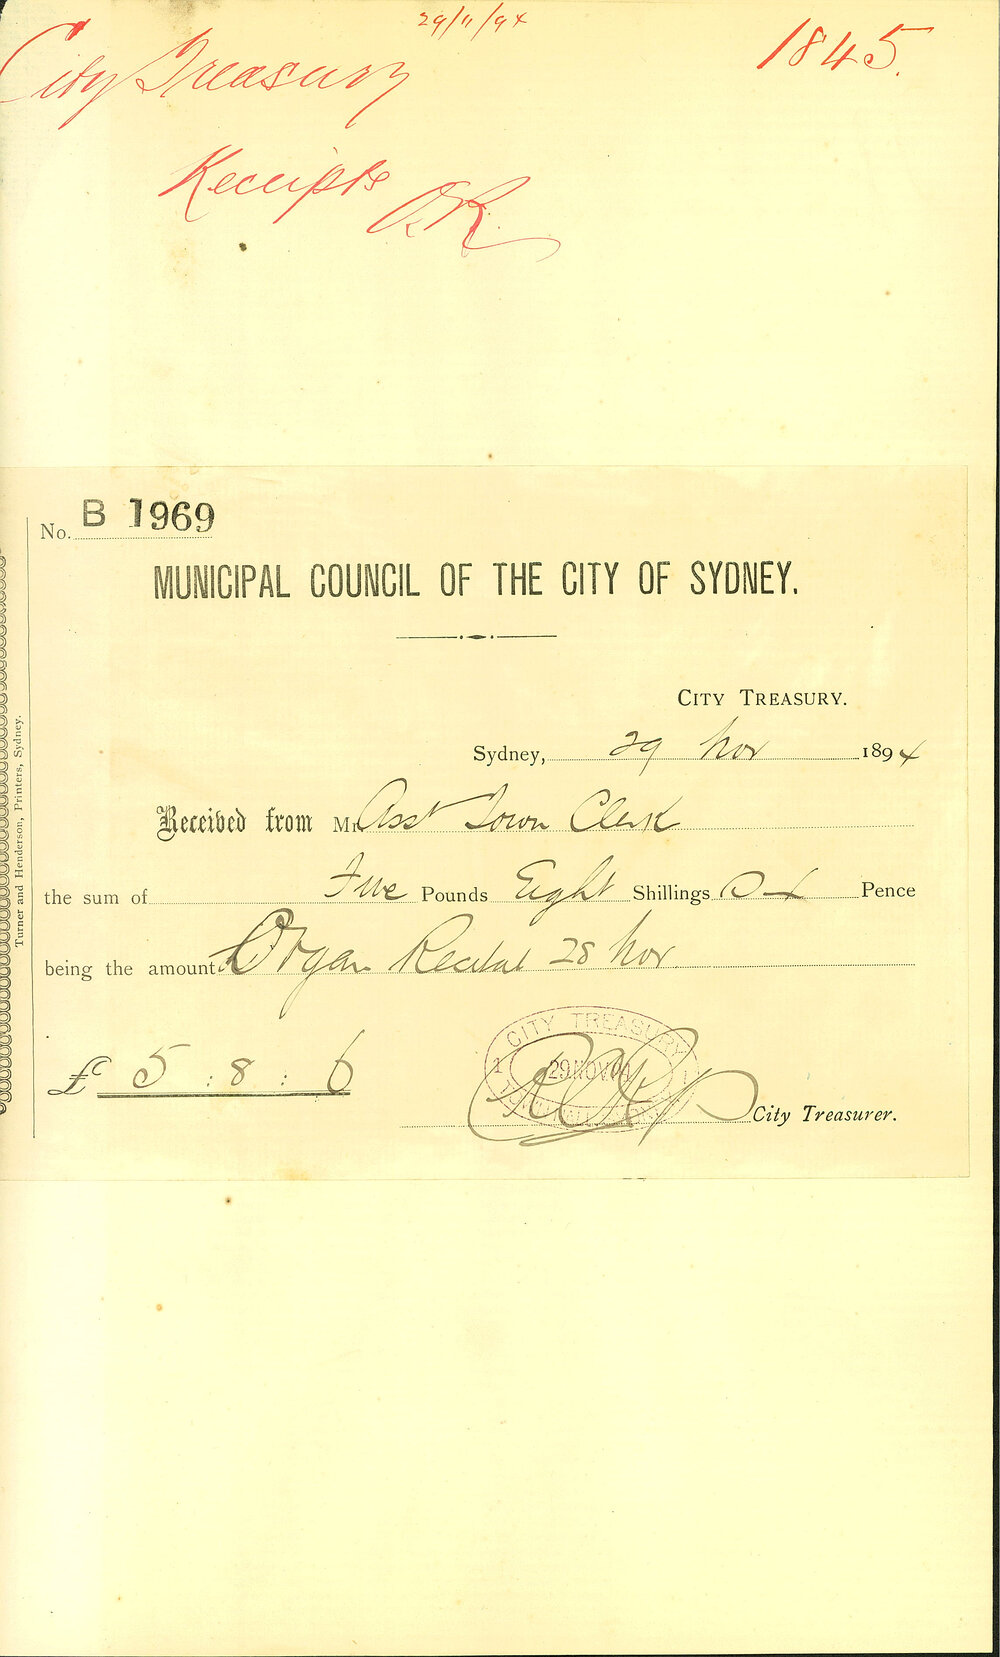 29/11/94
1845.
City Treasury
Receipts
No. B 1969
MUNICIPAL COUNCIL OF THE CITY OF SYDNEY.
CITY TREASURY.
Sydney, 29 Nov 1894
Received from Mr Asst Town Clerk
the sum of Five Pounds Eight Shillings Pence
being the amount Organ Recital 28 Nov
£ 5 : 8 : 6
CITY TREASURY
29 NOV
City Treasurer.
Turner and Henderson, Printers, Sydney.